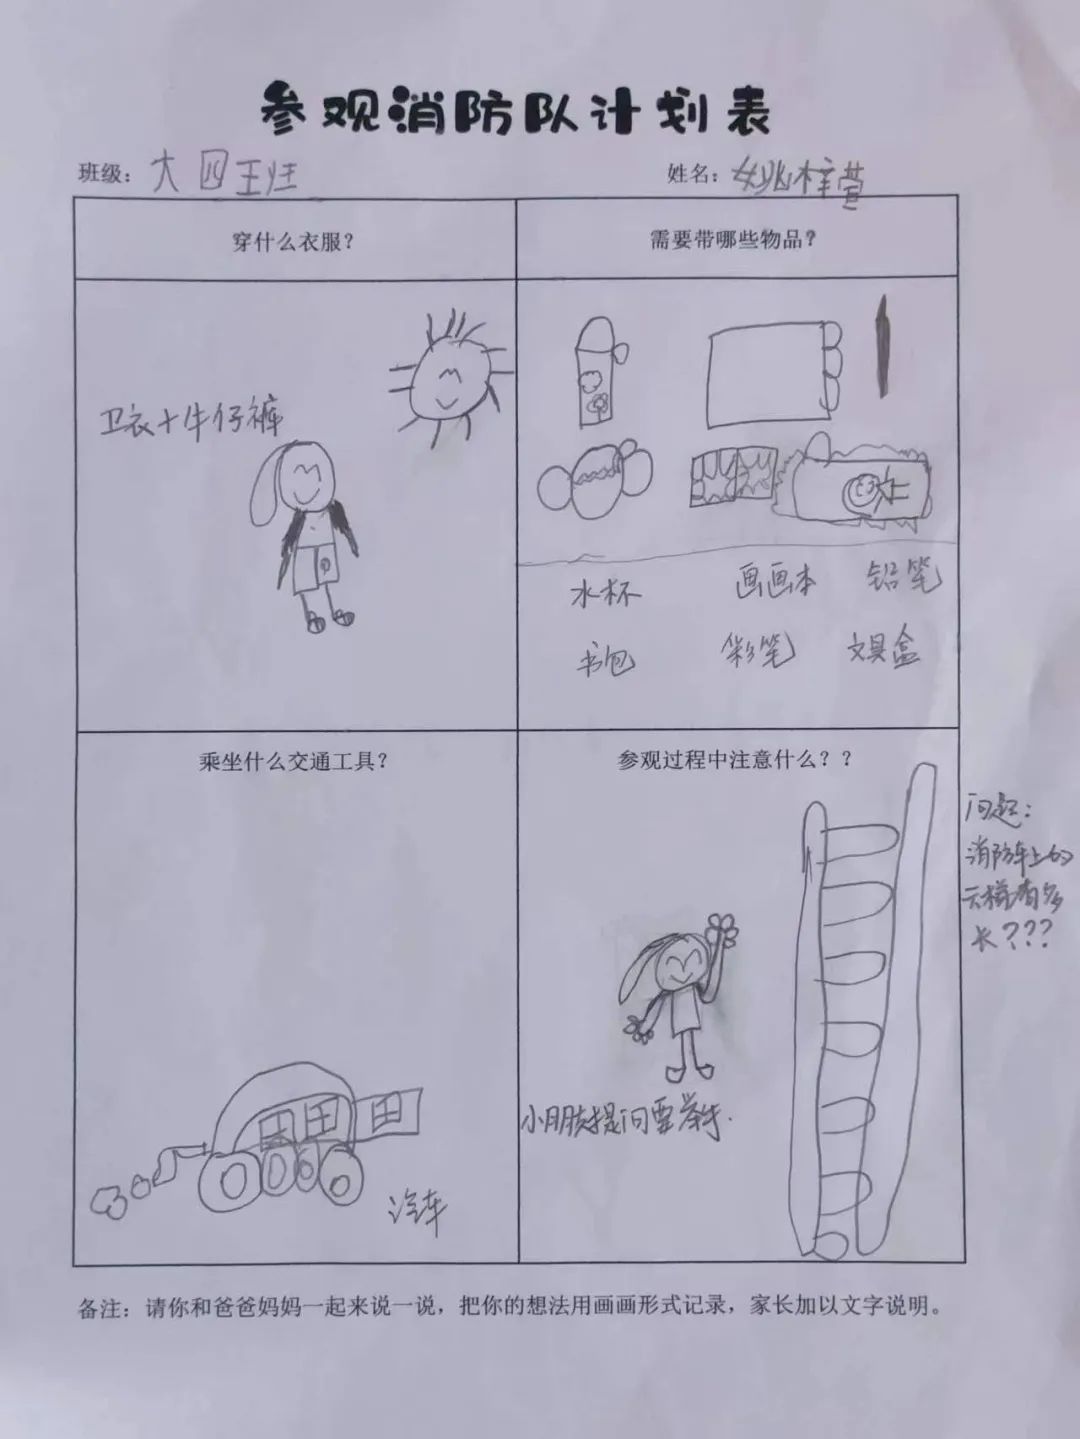 参观消防队计划表
班级：大四班
姓名：姚梓萱
穿什么衣服？
需要带哪些物品？
卫衣+牛仔裤
水杯 画画本 铅笔
书包 彩笔 文具盒
乘坐什么交通工具？
参观过程中注意什么？？
汽车
小朋友提问要举手.
问题：
消防车上的
云梯有多
长???
备注：请你和爸爸妈妈一起来说一说，把你的想法用画画形式记录，家长加以文字说明。